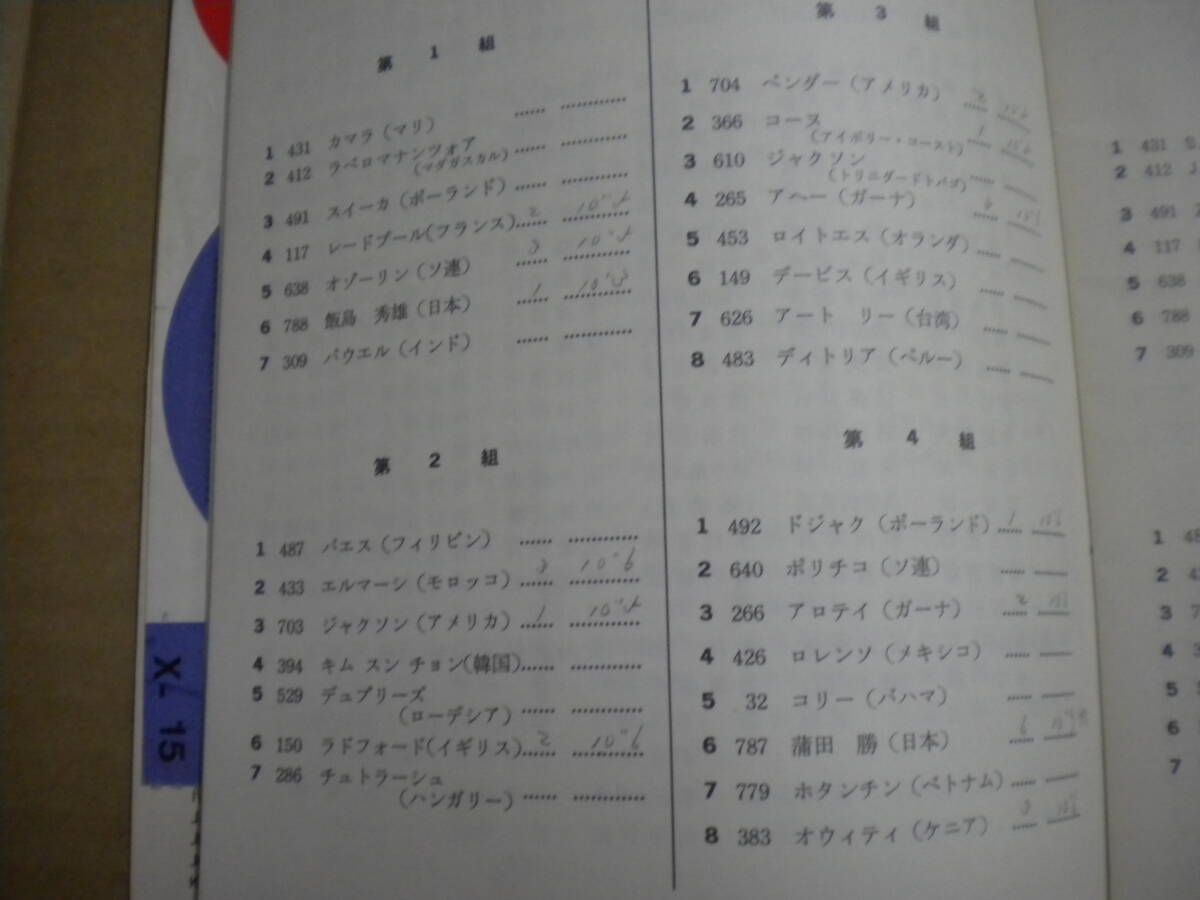 第 1 組
1 431 カマラ（マリ） …… …………
2 412 ラベロマナンツォア …… …………
（マダガスカル）
3 491 スイーカ（ポーランド） …… …………
4 117 レードブール（フランス）…… 2 …………
5 638 オゾーリン（ソ連） …… 3 …………
6 788 飯島 秀雄（日本） …… 1 …………
7 309 パウエル（インド） …… …………
第 2 組
1 487 パエス（フィリピン） …… …………
2 433 エルマーシ（モロッコ） 3 10"6
3 703 ジャクソン（アメリカ） 1 …………
4 394 キム スン チョン（韓国）…… …………
5 529 デュプリーズ
（ローデシア） …… …………
6 150 ラドフォード（イギリス） 2 10"6
7 286 チュトラーシュ
（ハンガリー） …… …………
第 3 組
1 704 ペンダー（アメリカ） 2
2 366 コーヌ
（アイボリー・コースト） 1
3 610 ジャクソン
（トリニダードトバゴ） ……
4 265 アヘー（ガーナ）
5 453 ロイトエス（オランダ） ……
6 149 デービス（イギリス） ……
7 626 アート リー（台湾） ……
8 483 ディトリア（ペルー） ……
第 4 組
1 492 ドジャク（ポーランド） 1
2 640 ポリチコ（ソ連） ……
3 266 アロテイ（ガーナ） 2
4 426 ロレンソ（メキシコ） ……
5 32 コリー（バハマ） ……
6 787 蒲田 勝（日本） 6
7 779 ホタンチン（ベトナム） ……
8 383 オウィティ（ケニア） 3
1 431 S.
2 412 J.
3 491
4 117
5 638
6 788
7 309
1 48
2 4
3 7
4 3
5
6
7
X- 15